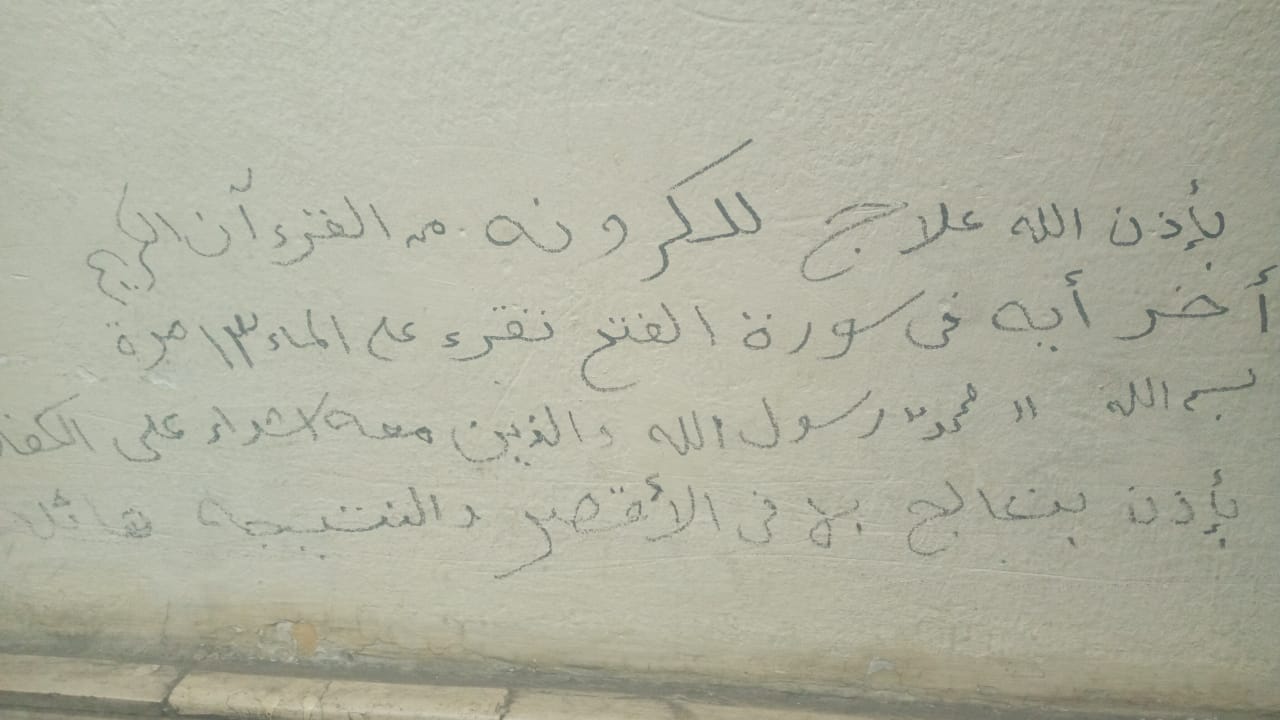 بإذن الله علاج للكرونه من القرءآن الكريم
أخر أيه فى سورة الفتح تقرء على الماء ١٣ مرة
بسم الله " محمد" رسول الله والذين معه اشداء على الكفار
بإذن بنعالج بها فى الأقصر والنتيجه هائله